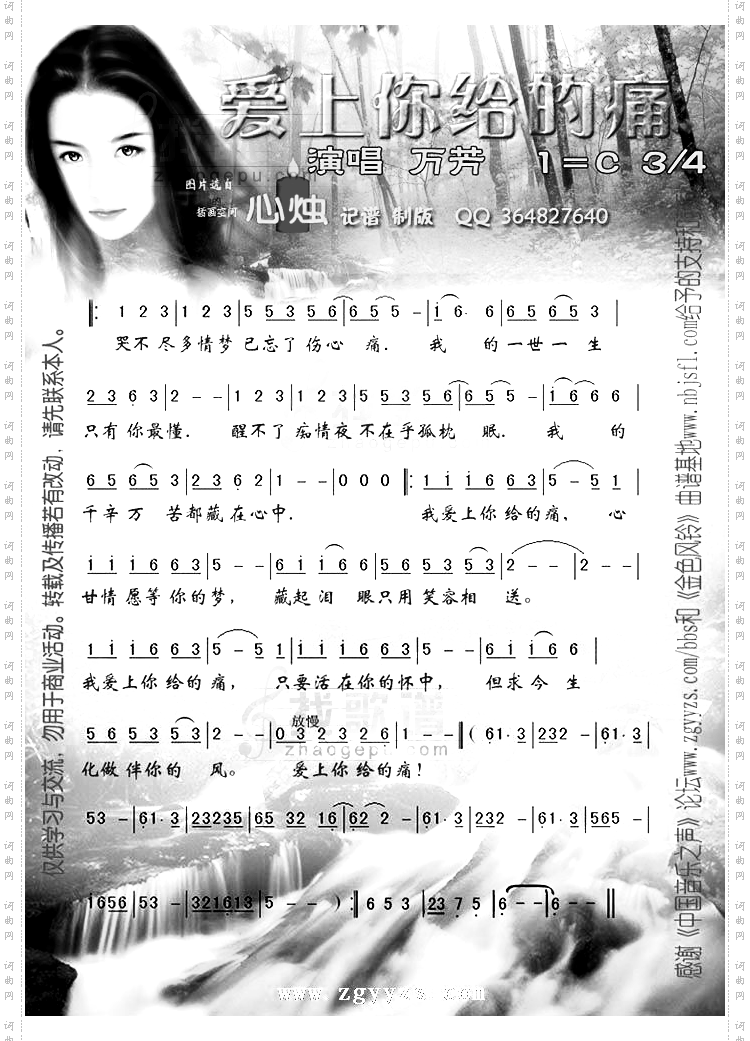 爱上你给的痛
演唱 万芳 1=C 3/4
图片选自
插画空间
心烛 记谱 制版 QQ 364827640
zhaogepu.com
‖: 1 2 3 | 1 2 3 | 5 5 3 5 6 | 6 5 5 - | i 6· 6 | 6 5 6 5 3 |
哭不尽多情梦已忘了伤心痛. 我的一世一生
2 3 6 3 | 2 - - | 1 2 3 | 1 2 3 | 5 5 3 5 6 | 6 5 5 - | i 6 6 6 |
只有你最懂. 醒不了痴情夜不在乎孤枕眠. 我的
6 5 6 5 3 | 2 3 6 2 | 1 - - | 0 0 0 ‖: 1 i i 6 6 3 | 5 - 5 1 |
千辛万苦都藏在心中. 我爱上你给的痛, 心
i i i 6 6 3 | 5 - - | 6 i i 6 6 | 5 6 5 3 5 3 | 2 - - | 2 - - |
甘情愿等你的梦, 藏起泪眼只用笑容相送。
1 i i 6 6 3 | 5 - 5 | 1 i i i 6 6 3 | 5 - - | 6 i i 6 6 |
我爱上你给的痛, 只要活在你的怀中, 但求今生
放慢
5 6 5 3 5 3 | 2 - - | 0 3 2 3 2 6 | 1 - - ‖ ( 61· 3 | 232 - | 61· 3 |
化做伴你的风。 爱上你给的痛!
找歌谱
zhaogepu.com
53 - | 61· 3 | 23235 | 65 32 16 | 62 2 - | 61· 3 | 232 - | 61· 3 | 565 - |
i656 | 53 - | 321613 | 5 - - ) :‖ 6 5 3 | 23 7 5 | 6 - - | 6 - - ‖
www.zgyyzs.com
仅供学习与交流,勿用于商业活动。转载及传播若有改动,请先联系本人。
感谢《中国音乐之声》论坛www.zgyyzs.com/bbs和《金色风铃》曲谱基地www.nbjsfl.com给予的支持和
词曲网